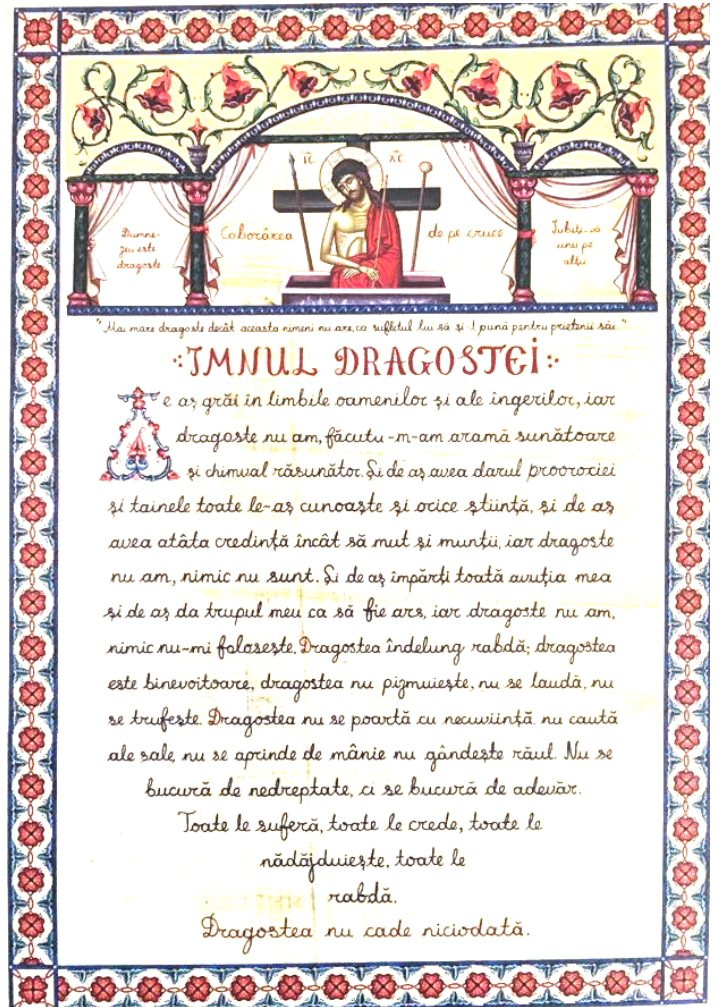 IC XC
Dumne-
zeu este
dragoste
Coborârea de pe cruce
Iubiți-vă
unii pe
alții
"Mai mare dragoste decât aceasta nimeni nu are, ca sufletul lui să și-l pună pentru prietenii săi."
IMNUL DRAGOSTEI
De aș grăi în limbile oamenilor și ale îngerilor, iar
dragoste nu am, făcutu-m-am aramă sunătoare
și chimval răsunător. Și de aș avea darul proorociei
și tainele toate le-aș cunoaște și orice știință, și de aș
avea atâta credință încât să mut și munții, iar dragoste
nu am, nimic nu sunt. Și de aș împărți toată avuția mea
și de aș da trupul meu ca să fie ars, iar dragoste nu am,
nimic nu-mi folosește. Dragostea îndelung rabdă; dragostea
este binevoitoare, dragostea nu pizmuiește, nu se laudă, nu
se trufește. Dragostea nu se poartă cu necuviință, nu caută
ale sale, nu se aprinde de mânie nu gândește răul. Nu se
bucură de nedreptate, ci se bucură de adevăr.
Toate le suferă, toate le crede, toate le
nădăjduiește, toate le
rabdă.
Dragostea nu cade niciodată.